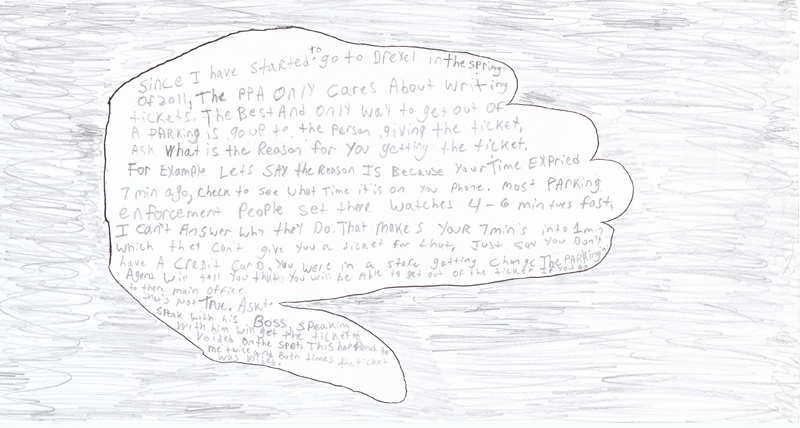 Since I have started to go to Drexel in the spring
of 2011, The PPA ONLY CARES About writing
tickets. The Best And ONLY way to get out of
A PARKing is go up to the Person giving the ticket,
Ask What is the Reason for You getting the ticket.
For Example Lets SAY the Reason IS Because Your Time EXPried
7 min ago, check to see what Time it is on you Phone. most PARKing
enforcement People set there watches 4-6 mintues fast,
I can't Answer why they Do. That makes YouR 7min's into 1min
which they Can't give you a ticket for that, Just say You Don't
have A CReDit CarD, You were in a store getting change The PARKing
Agent win tell You that, You will be Able to get out of the ticket If you go
to there main office.
that's Not True. Ask to
speak with his Boss, speaking
With him win get the ticketed
Voided on the spot. This happend to
me twice and Both times the ticket
was voided.